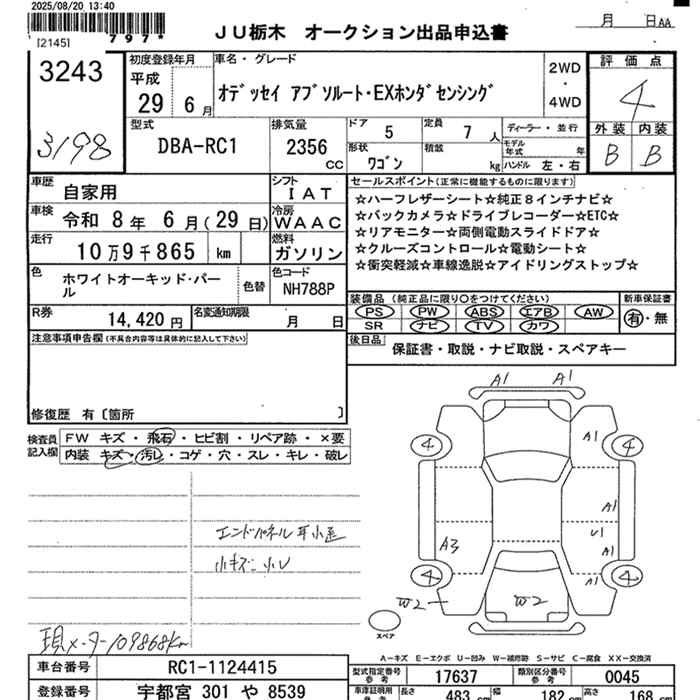 2025/08/20 13:40
[2145] 797*
JU栃木 オークション出品申込書
月 日AA
3243
3198
初度登録年月
平成
29 6 月
車名・グレード
オデッセイ アブソルート・EXホンダセンシング
2WD
・
4WD
評価点
4
外装 内装
B B
型式
DBA-RC1
排気量
2356
CC
ドア
5
定員
7 人
形状
ワゴン
積載
kg
ディーラー・並行
モデル年式 年
ハンドル 左・右
車歴
自家用
シフト
IAT
車検
令和 8 年 6 月(29 日)
冷房
WAAC
走行
10 万9 千865 km
燃料
ガソリン
色
ホワイトオーキッド・パール
色替
色コード
NH788P
R券
14,420 円
名変通知期限
月 日
セールスポイント(正常に機能するものに限ります)
☆ハーフレザーシート☆純正8インチナビ☆
☆バックカメラ☆ドライブレコーダー☆ETC☆
☆リアモニター☆両側電動スライドドア☆
☆クルーズコントロール☆電動シート☆
☆衝突軽減☆車線逸脱☆アイドリングストップ☆
装備品(純正品に限り○をつけてください)
PS PW ABS エアB AW
SR ナビ TV カワ
新車保証書
有・無
後日品
保証書・取説・ナビ取説・スペアキー
注意事項申告欄(不具合内容等は具体的に記入して下さい)
修復歴 有〔箇所 〕
検査員記入欄
FW キズ・飛石・ヒビ割・リペア跡・×要
内装 キズ・汚レ・コゲ・穴・スレ・キレ・破レ
エンドパネル耳小歪
小キズ 小U
現メーター109868km
A1 A1
4 A1 4
A1
A3 U1
A1
4 A1 4
W2 W2
スペア
A-キズ E-エクボ U-凹み W-補修跡 S-サビ C-腐食 XX-交換済
車台番号
RC1-1124415
登録番号
宇都宮 301 や 8539
型式指定番号
参考
17637
類別区分番号
参考
0045
車庫証明用
参考
長さ
483 cm
幅
182 cm
高さ
168 cm